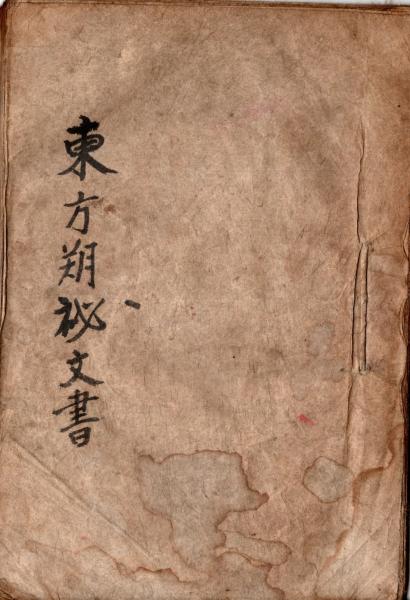 東方朔秘文書